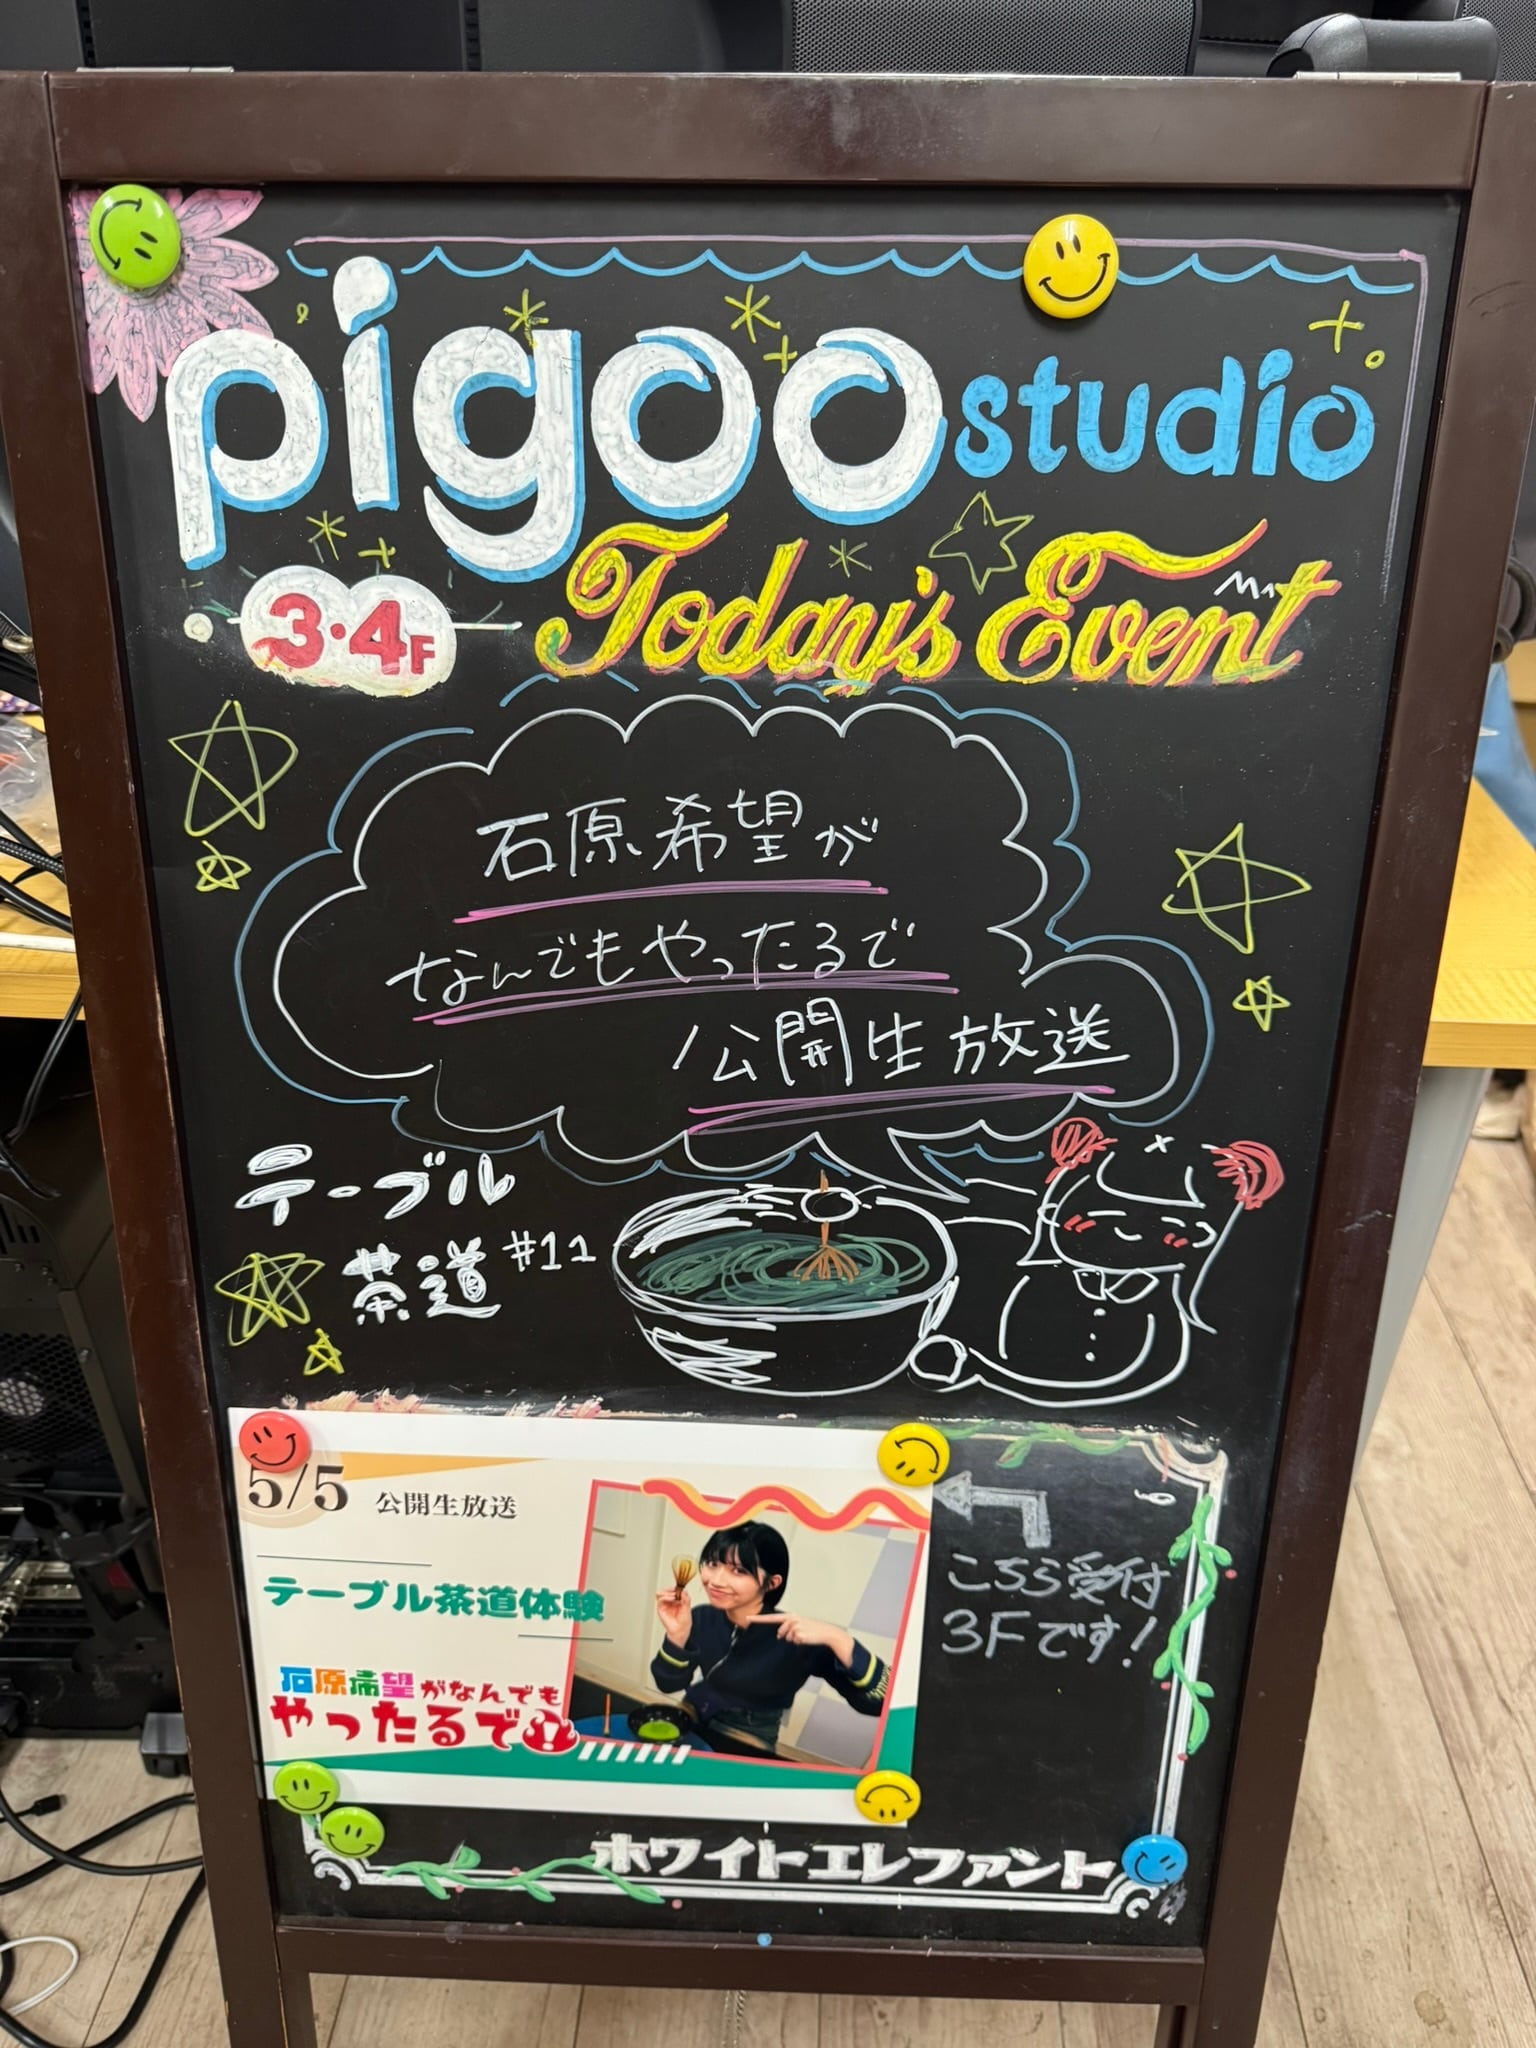 pigoo studio
3・4F Today's Event
石原希望が
なんでもやったるで
公開生放送
テーブル
茶道 #11
5/5 公開生放送
テーブル茶道体験
石原希望がなんでも
やったるで!
こちら受付
3Fです!
ホワイトエレファント